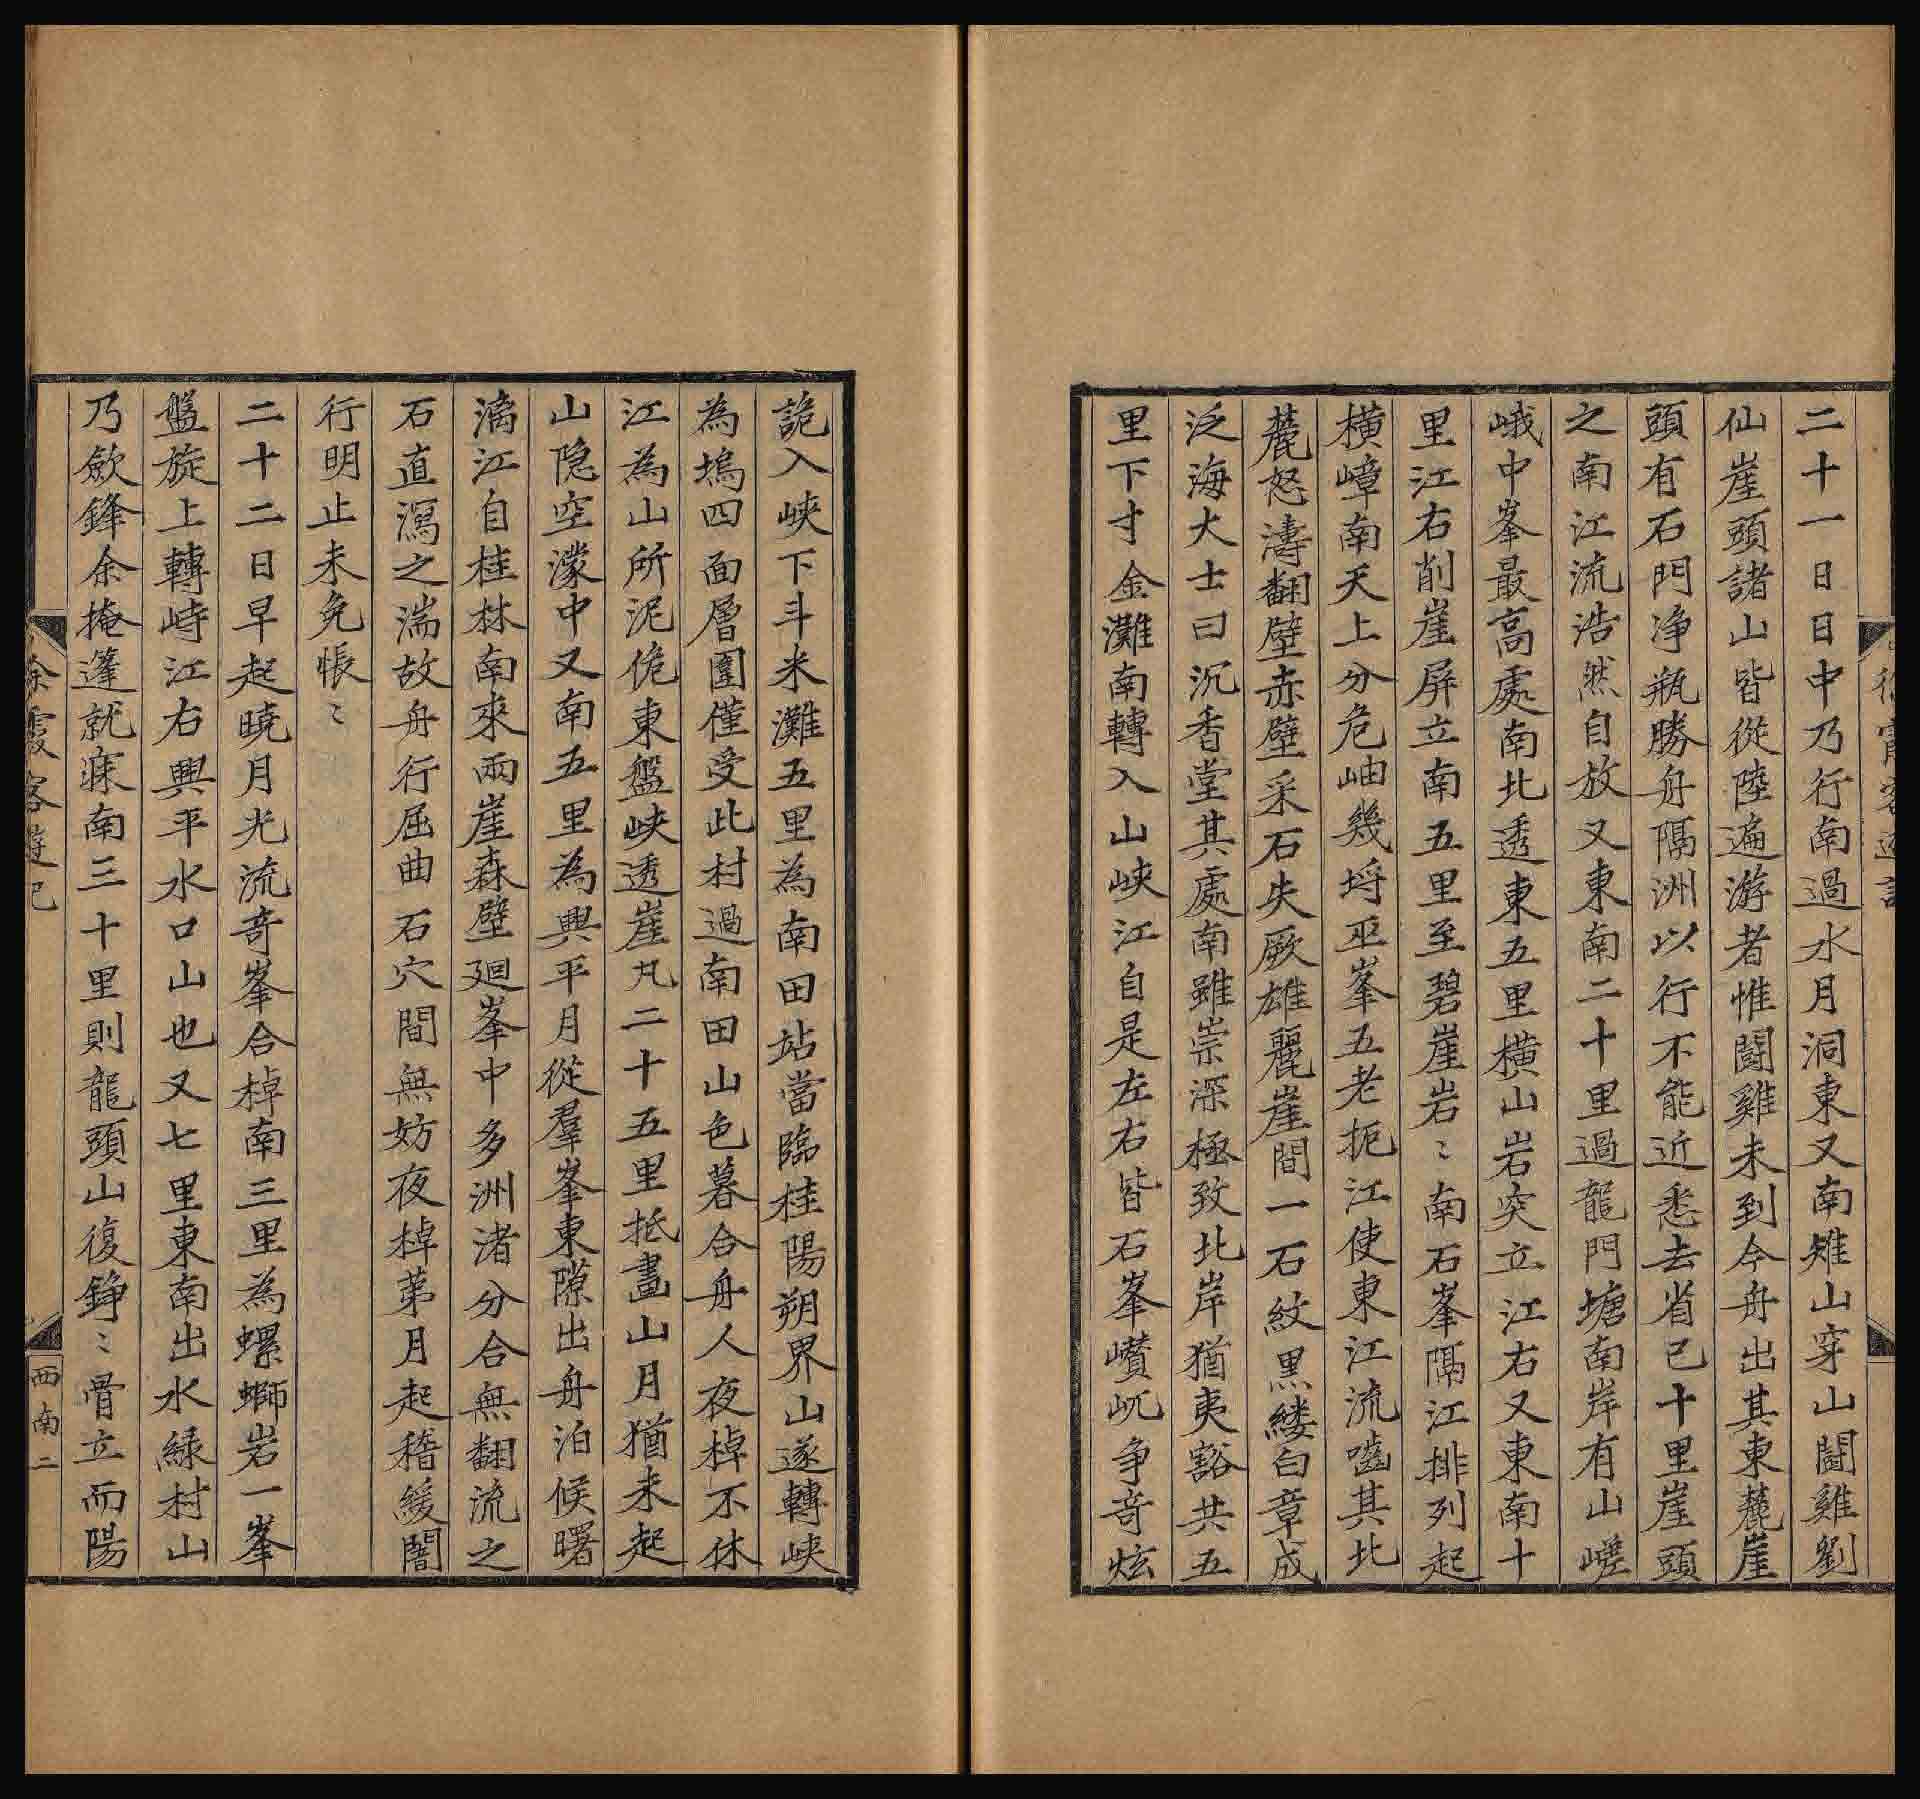 徐霞客遊記
二十一日日中乃行南過水月洞東又南雉山穿山鬭雞劉
仙崖頭諸山皆從陸遍游者惟鬭雞未到今舟出其東麓崖
頭有石門净瓶勝舟隔洲以行不能近悉去省已十里崖頭
之南江流浩然自放又東南二十里過龍門塘南岸有山嵯
峨中峯最高處南北透東五里橫山岩突立江右又東南十
里江右削崖屏立南五里至碧崖岩〻南石峯隔江排列起
橫嶂南天上分危岫幾埒巫峯五老扼江使東江流嚙其北
麓怒濤翻壁赤壁采石失厥雄麗崖間一石紋黑縷白章成
泛海大士曰沉香堂其處南雖崇深極致北岸猶夷豁共五
里下寸金灘南轉入山峽江自是左右皆石峯巑岏争奇炫
詭入峽下斗米灘五里為南田站當臨桂陽朔界山遂轉峽
為塢四面層圍僅受此村過南田山色暮合舟人夜棹不休
江為山所泥佹東盤峽透崖凡二十五里抵畫山月猶未起
山隐空濛中又南五里為興平月從羣峯東隙出舟泊候曙
漓江自桂林南來兩崖森壁廻峯中多洲渚分合無翻流之
石直瀉之湍故舟行屈曲石穴間無妨夜棹苐月起稽緩闇
行明止未免悵〻
二十二日早起曉月光流奇峯合棹南三里為螺螄岩一峯
盤旋上轉峙江右興平水口山也又七里東南出水緑村山
乃歛鋒余掩蓬就寐南三十里則龍頭山復錚〻骨立而陽
徐霞客遊記
西南二